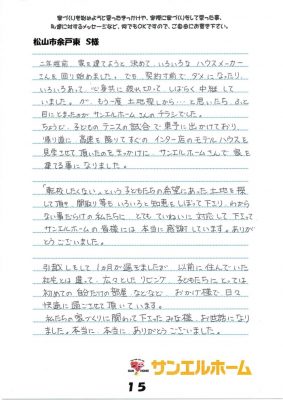 家づくりを始めようと思ったきっかけや、実際に家づくりをして思った事、
私達に対するメッセージなど、何でもOKですので、ご自由にお書き下さい。
松山市余戸東 S様
二年程前 家を建てようと決めて、いろいろな ハウスメーカー
さんを回り始めました。でも、契約寸前で ダメになったり、
いろいろあって、心身共に疲れ切って、しばらく中断して
いました。が、もう一度 土地探しから…と思いたち、ふと
目にとまったのが サンエルホームさんのチラシでした。
ちょうど、子どものテニスの試合で東予に出かけており、
帰り道に 高速を降りてすぐの インター店の モデルハウスを
見学させて頂いたのをきっかけに、サンエルホームさんで 家を
建てる事になりました。
「転校したくない。」という子どもたちの希望にあった土地を探し
て頂き、間取り等も いろいろと知恵をしぼって下さり、わから
ない事だらけの私たちに とても ていねいに 対応して下さって
サンエルホームの皆様には 本当に感謝しています。ありが
とうございました。
引越しをして 1か月が過ぎましたが、以前に住んでいた
社宅とは違って、広々とした リビング、子どもたちにとっては
初めての 自分だけの部屋 などなど、おかげ様で 日々
快適に過ごさせて頂いています。
私たちの家づくりに関わって下さった みな様、お世話になり
ました。本当に 本当に ありがとうございました。
サンエルホーム
15